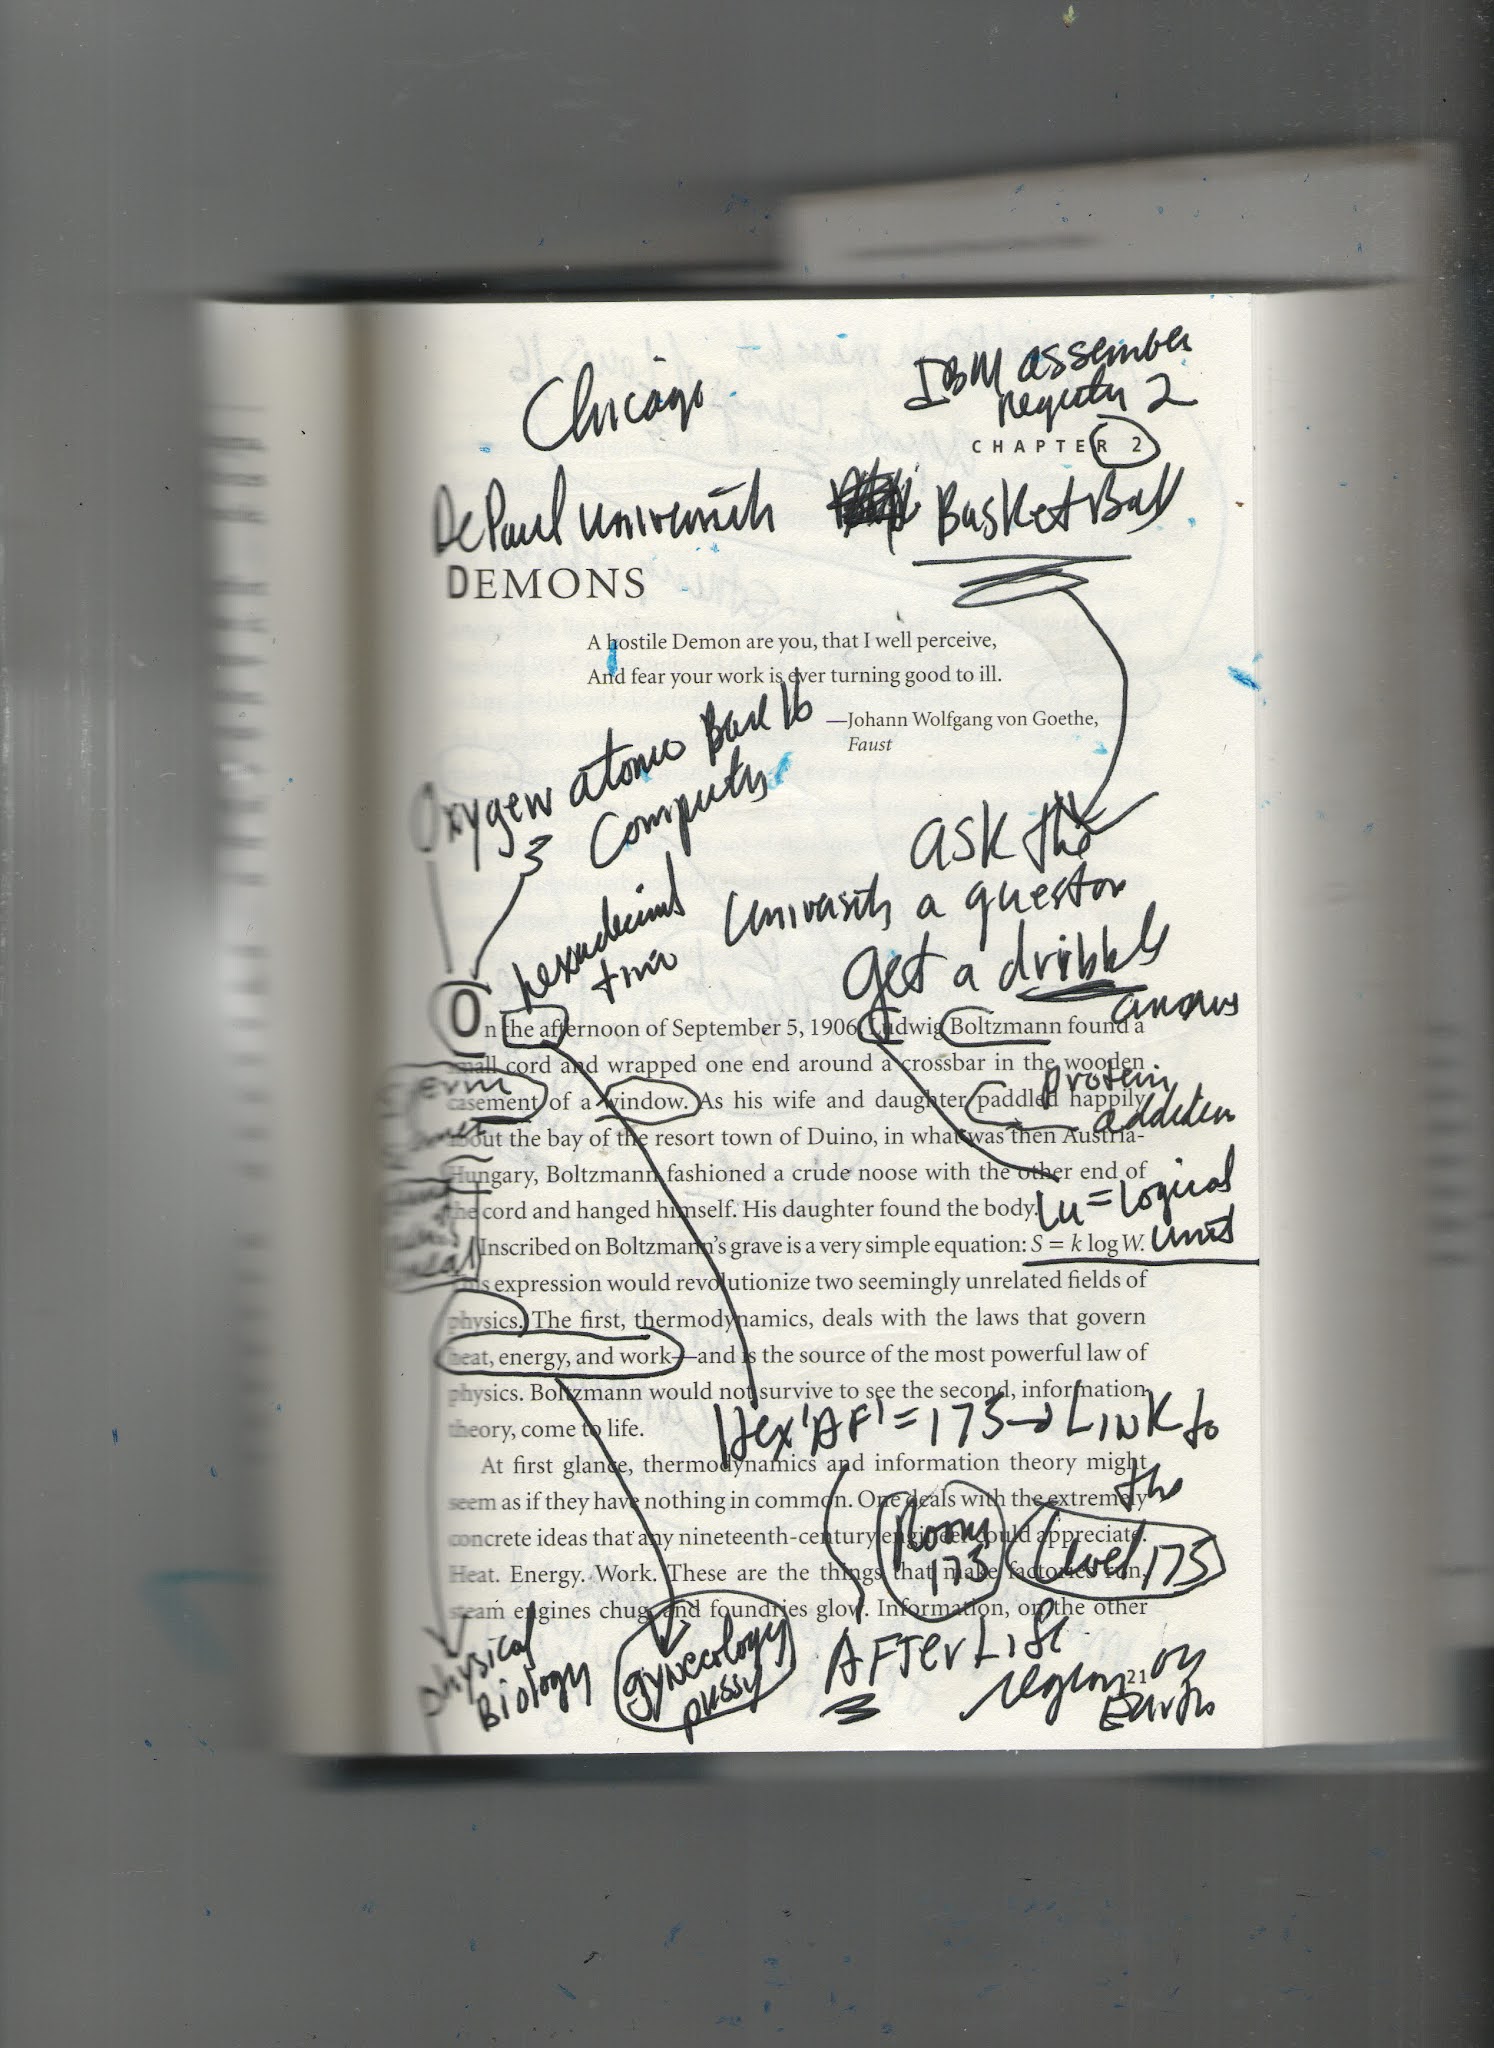 Chicago
IBM assember
register 2
CHAPTER 2
DePaul University
BasketBall
DEMONS
A hostile Demon are you, that I well perceive,
And fear your work is ever turning good to ill.
—Johann Wolfgang von Goethe,
Faust
Oxygen atomic Base 16
Computer
ask the
University a question
get a dribble
answer
hexadecimal
On the afternoon of September 5, 1906, Ludwig Boltzmann found a
small cord and wrapped one end around a crossbar in the wooden
casement of a window. As his wife and daughter paddled happily
Protein
addition
about the bay of the resort town of Duino, in what was then Austria-
Hungary, Boltzmann fashioned a crude noose with the other end of
the cord and hanged himself. His daughter found the body.
Lu = Logical
unit
Inscribed on Boltzmann's grave is a very simple equation: S = k log W.
This expression would revolutionize two seemingly unrelated fields of
physics. The first, thermodynamics, deals with the laws that govern
heat, energy, and work—and is the source of the most powerful law of
physics. Boltzmann would not survive to see the second, information
theory, come to life.
Hex'AF' = 175 → LINK to
the
At first glance, thermodynamics and information theory might
seem as if they have nothing in common. One deals with the extremely
concrete ideas that any nineteenth-century engineer could appreciate.
Heat. Energy. Work. These are the things that make factories run,
steam engines chug, and foundries glow. Information, on the other
Room
175
Level 175
physical
Biology
gynecology
pussy
AFTerLife
region on
Earth
21